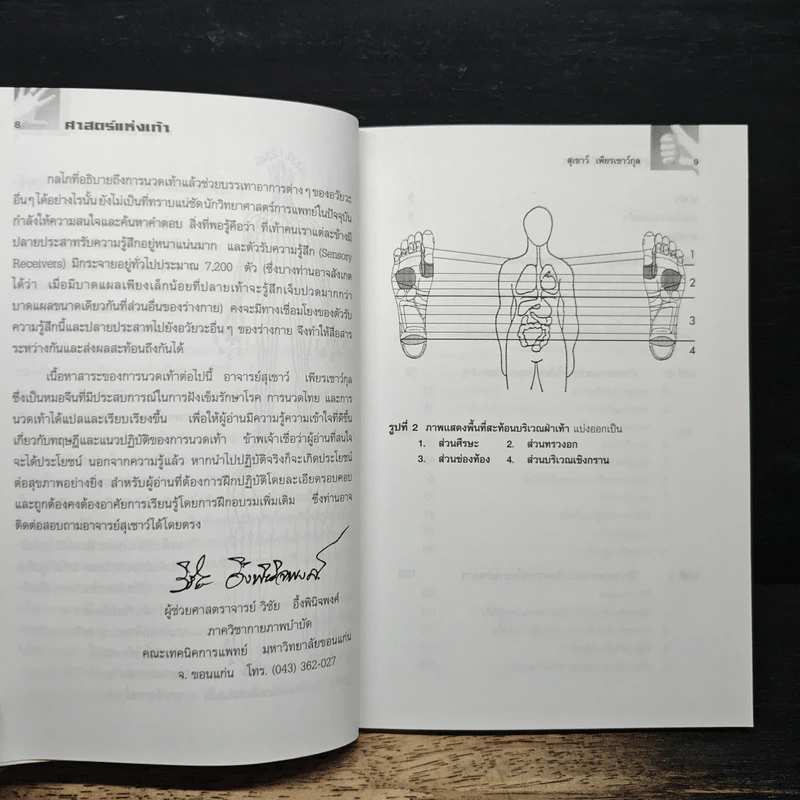 8
ศาสตร์แห่งเท้า
กลไกที่อธิบายถึงการนวดเท้าแล้วช่วยบรรเทาอาการต่างๆ ของอวัยวะ
อื่นๆ ได้อย่างไรนั้น ยังไม่เป็นที่ทราบแน่ชัด นักวิทยาศาสตร์การแพทย์ในปัจจุบัน
กำลังให้ความสนใจและค้นหาคำตอบ สิ่งที่พอรู้คือว่า ที่เท้าคนเราแต่ละข้างมี
ปลายประสาทรับความรู้สึกอยู่หนาแน่นมาก และตัวรับความรู้สึก (Sensory
Receivers) มีกระจายอยู่ทั่วไปประมาณ 7,200 ตัว (ซึ่งบางท่านอาจสังเกต
ได้ว่า เมื่อมีบาดแผลเพียงเล็กน้อยที่ปลายเท้าจะรู้สึกเจ็บปวดมากกว่า
บาดแผลขนาดเดียวกันที่ส่วนอื่นของร่างกาย) คงจะมีทางเชื่อมโยงของตัวรับ
ความรู้สึกนี้และปลายประสาทไปยังอวัยวะอื่นๆ ของร่างกาย จึงทำให้สื่อสาร
ระหว่างกันและส่งผลสะท้อนถึงกันได้
เนื้อหาสาระของการนวดเท้าต่อไปนี้ อาจารย์สุเชาว์ เพียรเชาว์กุล
ซึ่งเป็นหมอจีนที่มีประสบการณ์ในการฝังเข็มรักษาโรค การนวดไทย และการ
นวดเท้าได้แปลและเรียบเรียงขึ้น เพื่อให้ผู้อ่านมีความรู้ความเข้าใจที่ดีขึ้น
เกี่ยวกับทฤษฎีและแนวปฏิบัติของการนวดเท้า ข้าพเจ้าเชื่อว่าผู้อ่านที่สนใจ
จะได้ประโยชน์ นอกจากความรู้แล้ว หากนำไปปฏิบัติจริงก็จะเกิดประโยชน์
ต่อสุขภาพอย่างยิ่ง สำหรับผู้อ่านที่ต้องการฝึกปฏิบัติโดยละเอียดรอบคอบ
และถูกต้องคงต้องอาศัยการเรียนรู้โดยการฝึกอบรมเพิ่มเติม ซึ่งท่านอาจ
ติดต่อสอบถามอาจารย์สุเชาว์ได้โดยตรง
วิชัย อึ้งพินิจพงศ์
ผู้ช่วยศาสตราจารย์ วิชัย อึ้งพินิจพงศ์
ภาควิชากายภาพบำบัด
คณะเทคนิคการแพทย์ มหาวิทยาลัยขอนแก่น
จ. ขอนแก่น โทร. (043) 362-027
สุเชาว์ เพียรเชาว์กุล
9
1
2
3
4
รูปที่ 2 ภาพแสดงพื้นที่สะท้อนบริเวณฝ่าเท้า แบ่งออกเป็น
1. ส่วนศีรษะ 2. ส่วนทรวงอก
3. ส่วนช่องท้อง 4. ส่วนบริเวณเชิงกราน